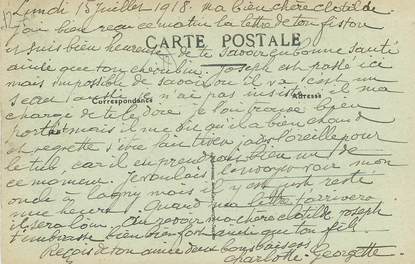 Lundi 15 juillet 1918. Ma bien chère Clotilde
J'ai bien reçu ce matin la lettre de ton fiston
et suis bien heureuse de te savoir en bonne santé
CARTE POSTALE
ainsi que ton chérubin. Joseph est passé ici
mais impossible de savoir où il va c'est un
Correspondance
Adresse
je n'ai pas insisté il m'a
chargé de te le dire je l'ai trouvé bien
portant mais il me dit qu'il a bien chaud
et regrette
le tub, car il en prendrait bien un de
ce moment. Je voulais l'envoyer voir mon
oncle à Lagny mais il n'y est resté
une heure. Quand ma lettre t'arrivera
il sera loin. Au revoir ma chère Clotilde Joseph
t'embrasse bien fort ainsi que ton fils.
Reçois de ton amie deux bons baisers
Charlotte Georgette